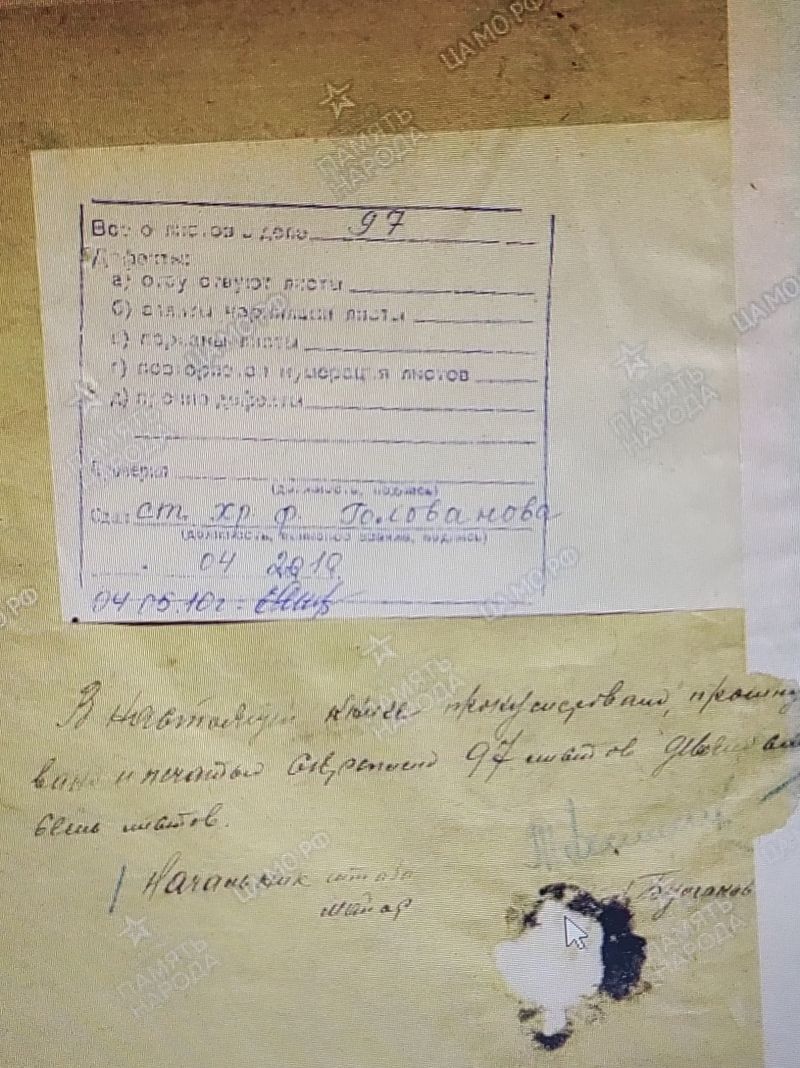 Всего листов в деле 97
Дефекты:
а) отсутствуют листы
б) листы
в) порваны листы
г) повторяется нумерация листов
д) прочие дефекты
Проверил
(должность, подпись)
Сдал ст. хр. ф. Голованова
(должность, воинское звание, подпись)
04 2010
04.05.10г.
В настоящем пронумеровано, прошну
вано и печатью скреплено 97 листов девяносто
семь листов.
Начальник штаба
майор
ЦАМО РФ
ПАМЯТЬ НАРОДА